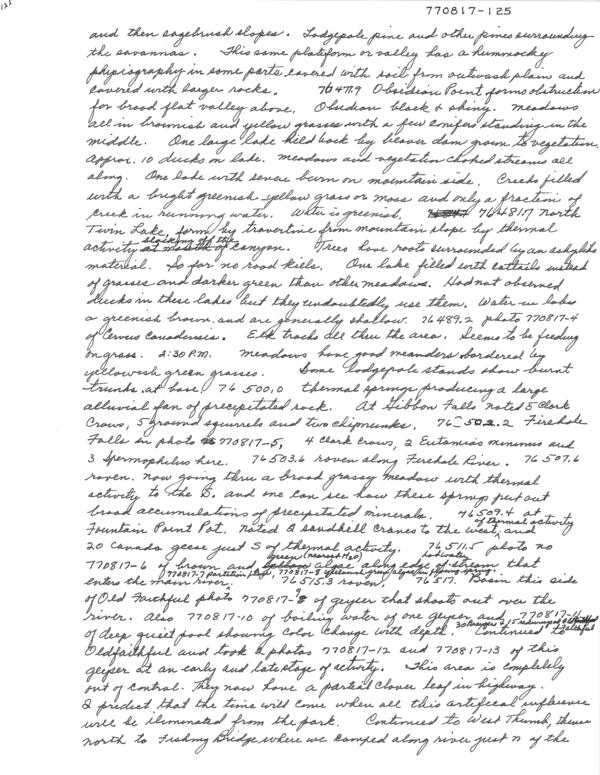 125
770817-125
and then sagebrush slopes. Lodgepole pine and other pines surrounding
the savannas. This same platform or valley has a hummocky
physiography in some parts covered with soil from outwash plain and
covered with larger rocks. 76477.9 Obsidian Point forms obstruction
for broad flat valley above. Obsidian black & shiny. Meadows
all in brownish and yellow grasses with a few conifers standing in the
middle. One large lake held back by beaver dam grown to vegetation.
Approx. 10 ducks on lake. Meadows and vegetation choked streams all
along. One lake with severe burn on mountain side. Creeks filled
with a bright greenish yellow grass or moss and only a fraction of
creek in running water. Water is greenish. 76481.7 North
Twin Lake, form by travertine from mountain slope by thermal
activity blocking off the of canyon. Trees have roots surrounded by an ashy white
material. So far no road kills. One lake filled with cattails instead
of grasses and darker green than other meadows. Had not observed
ducks in these lakes but they undoubtedly use them. Water in lakes
a greenish brown and are generally shallow. 76489.2 photo 770817-4
of Cervus canadensis. Elk tracks all thru the area. Seems to be feeding
on grass. 2:30 P.M. Meadows have good meanders bordered by
yellowish green grasses. Some lodgepole stands show burnt
trunks at base. 76500.0 thermal springs producing a large
alluvial fan of precipitated rock. At Gibbon Falls noted 5 Clark
Crows, 5 ground squirrels and two chipmunks. 76502.2 Firehole
Falls in photo 770817-5, 4 Clark crows, 2 Eutamias minimus and
3 Spermophilus here. 76503.6 raven along Firehole River. 76507.6
raven. now going thru a broad grassy meadow with thermal
activity to the S. and one can see how these springs put out
broad accumulations of precipitated minerals. 76509.4 at
Fountain Paint Pot. Noted 2 sandhill cranes to the west of thermal activity and
20 Canada geese just S of thermal activity. 76511.5 photo no
770817-6 of brown and green (nearest H2O) algae along edge of stream that
enters the main river. 770817-7 770817-8 76515.3 raven. 76517. Basin this side
of Old Faithful photo 770817-9 of geyser that shoots out over the
river. Also 770817-10 of boiling water of one geyser and 770817-11
of deep quiet pool showing color change with depth. Continued to
Oldfaithful and took 2 photos 770817-12 and 770817-13 of this
geyser at an early and late stage of activity. This area is completely
out of control. They now have a partial clover leaf in highway.
I predect that the time will come when all this artifical influence
will be illuminated from the park. Continued to West Thumb, thence
north to Fishing Bridge where we camped along river just N of the